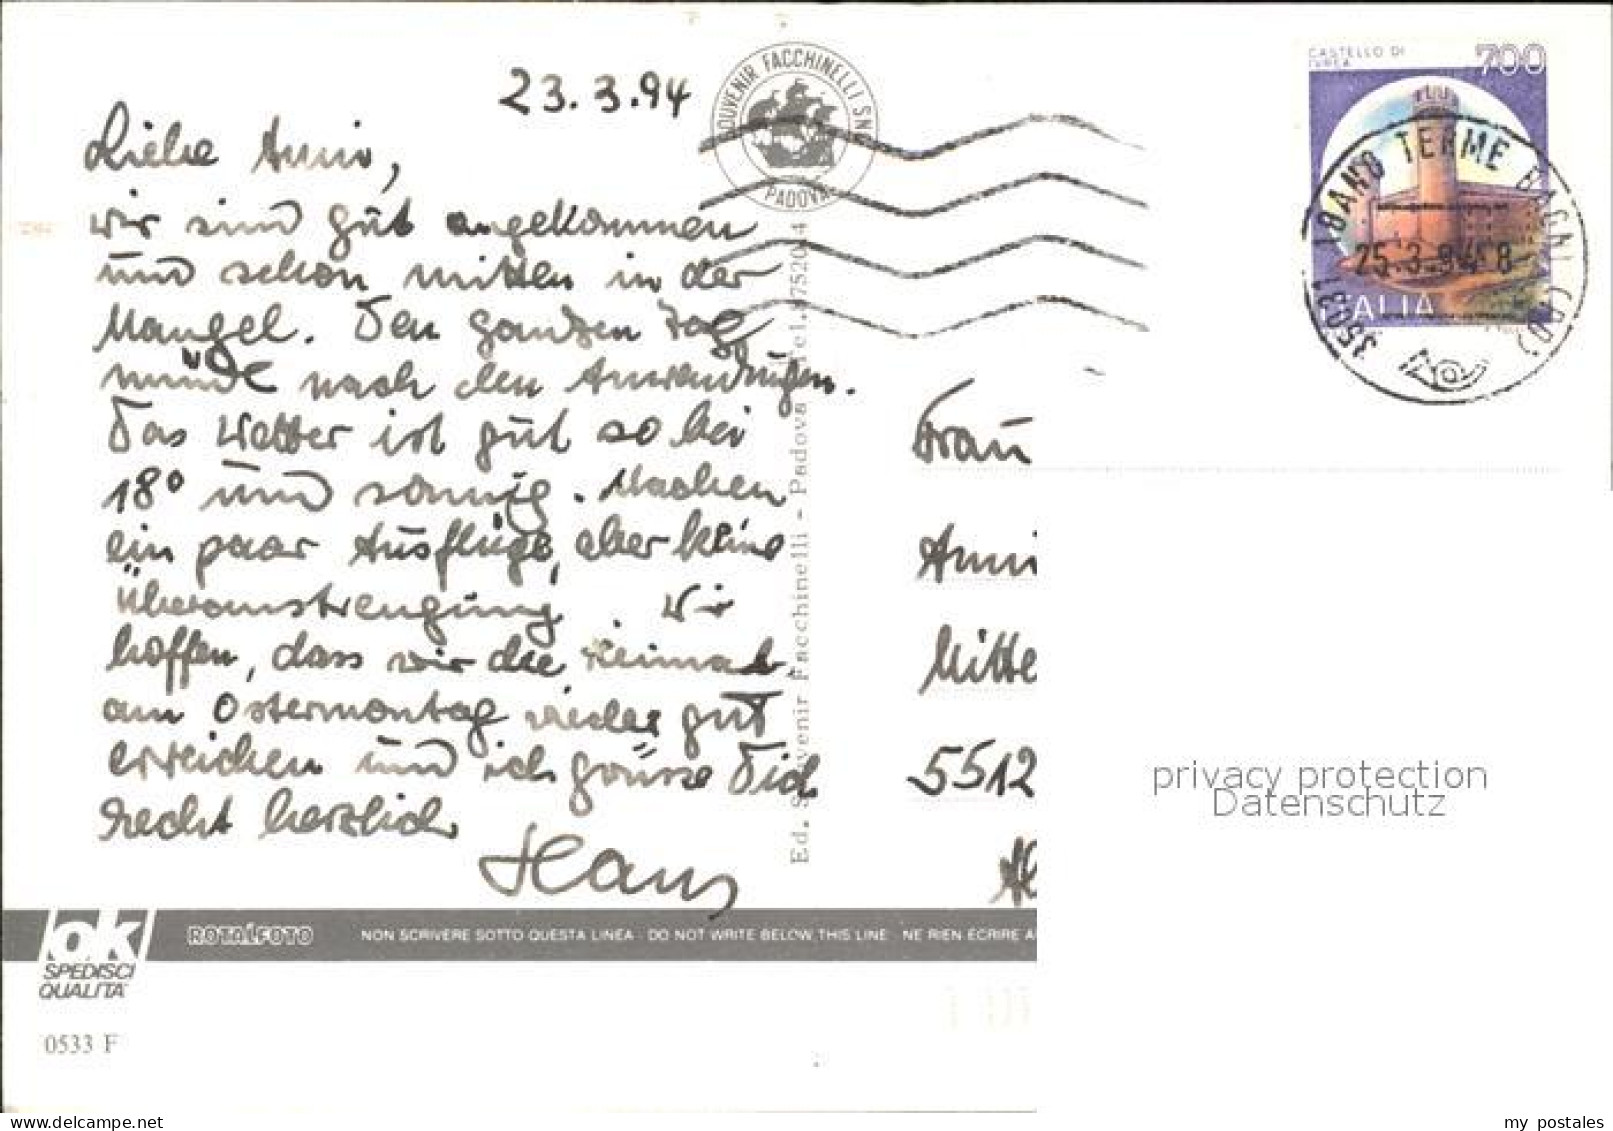 23.3.94
SOUVENIR FACCHINELLI SNC
PADOVA
CASTELLO DI
IVREA
700
ITALIA
35031 ABANO TERME BAGNI (PD)
25.3.94 8
Liebe Anni,
wir sind gut angekommen
und schon mitten in der
Mangel. Den ganzen Tag
müde nach den Anwendungen.
Das Wetter ist gut so bei
18° und sonnig. Machen
ein paar Ausflüge, aber keine
Überanstrengung. Wir
hoffen, dass wir die Heimat
am Ostermontag wieder gut
erreichen und ich grüsse Dich
recht herzlich
Hans
Ed. Souvenir Facchinelli - Padova
Frau
Anni
Mitte
5512
privacy protection
Datenschutz
ok
SPEDISCI
QUALITA'
ROTALFOTO
NON SCRIVERE SOTTO QUESTA LINEA - DO NOT WRITE BELOW THIS LINE NE RIEN ÉCRIRE A
0533 F
www.oldthing.de
my postales